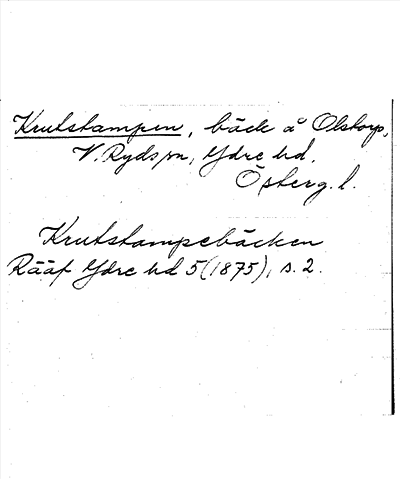 Krutstampen, bäck å Olstorp,
V. Ryds sn, Ydre hd.
Österg. l.
Krutstampebäcken
Rääf Ydre hd 5 (1875), s. 2.